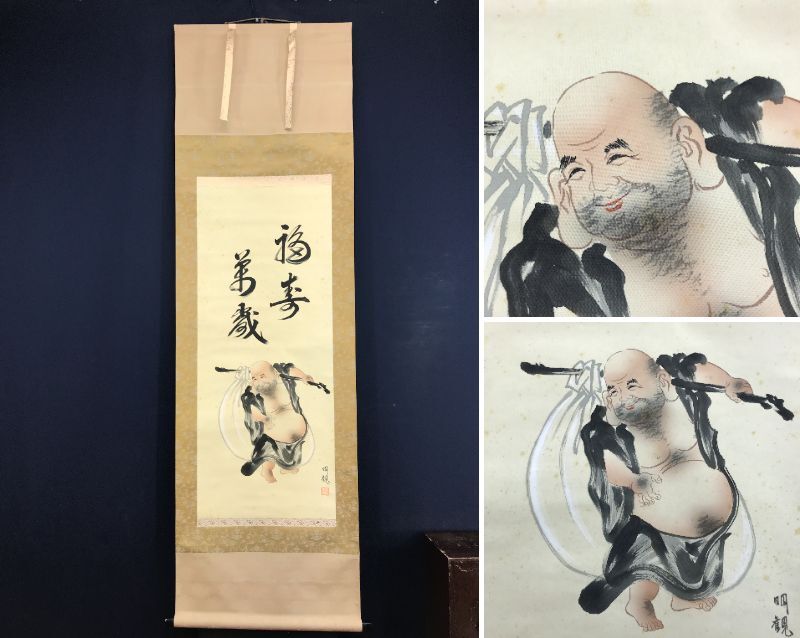 福寿
萬歳
明観
明観